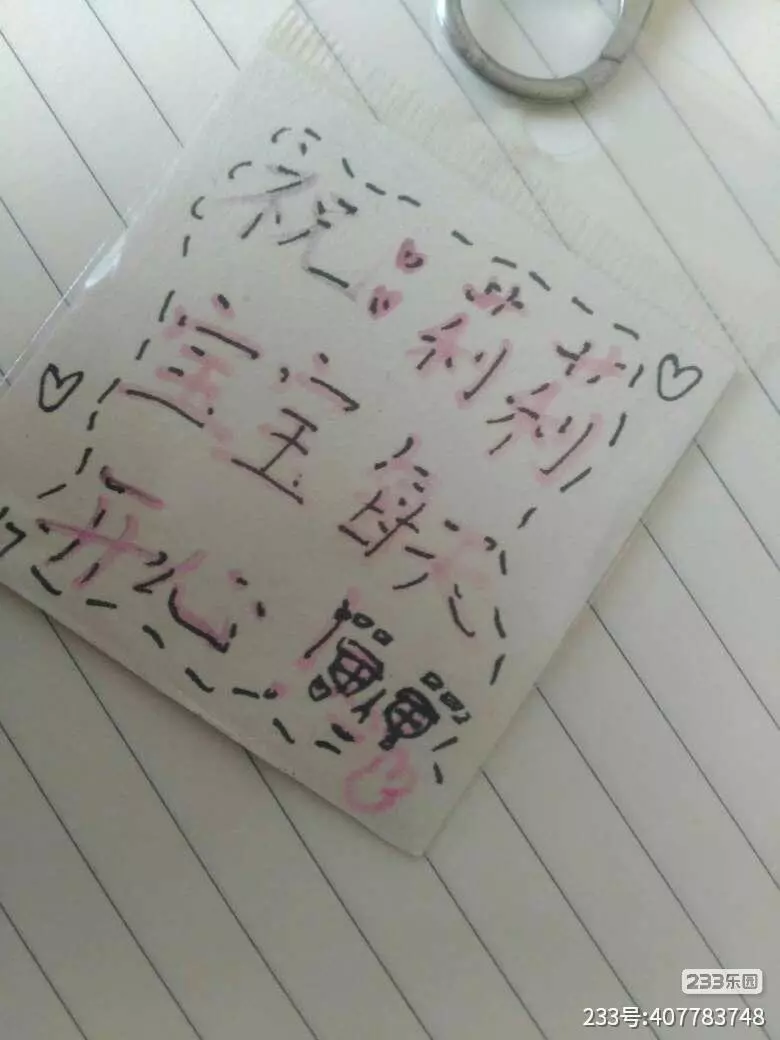 祝：莉莉
宝宝每天
开心
233乐园
233号:407783748